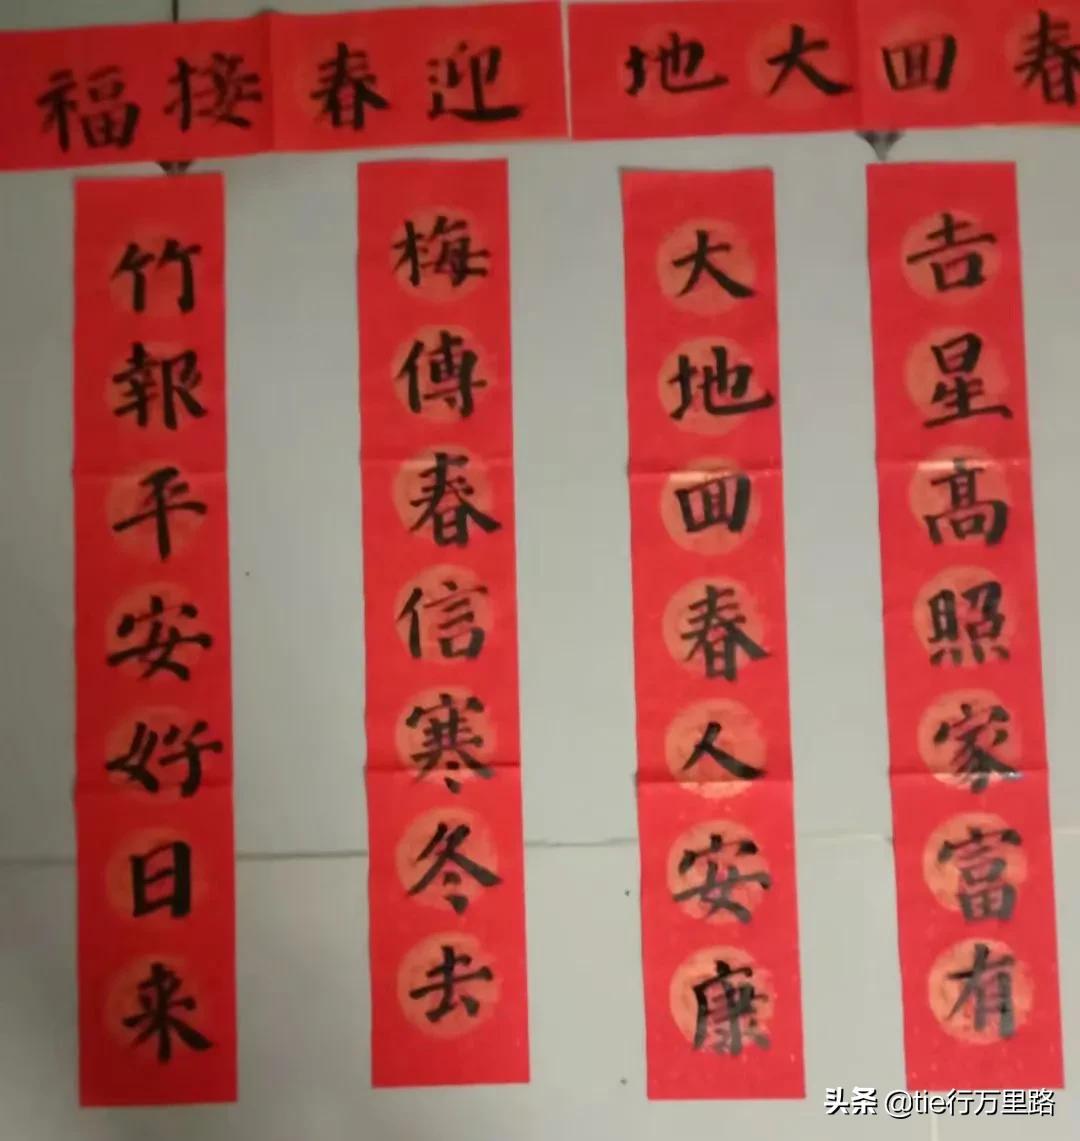 春回大地
吉星高照家富有
大地回春人安康
迎春接福
梅傳春信寒冬去
竹報平安好日来
头条 @tie行万里路